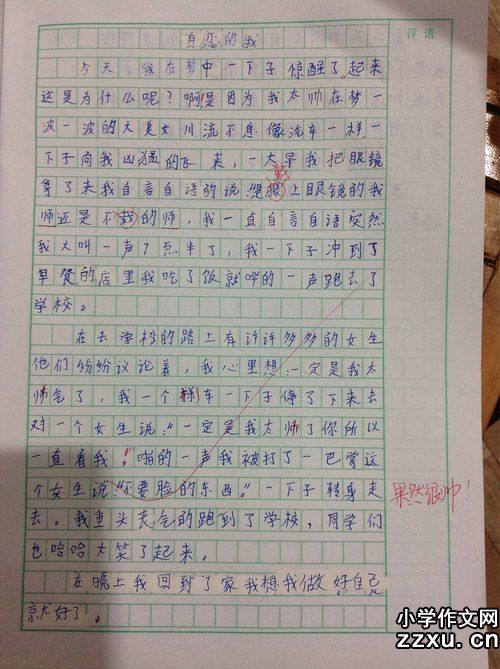 评语
自恋的我
今天,我在梦中一下子惊醒了起来
这是为什么呢?啊!是因为我太帅在梦一
波一波的大美女川流不息像汽车一样一
下子向我凶猛的飞来,一大早我把眼镜
戴
拿了来我自言自语的说:是 上眼镜的我
师还是不 的师,我一直自言自语突然
我大叫一声7点半了,我一下子冲到了
早餐的店里我吃了饭就哗的一声跑去了
学校。
在去学校的路上有许许多多的女生
他们纷纷议论着,我心里想一定是我太
帅气了,我一个 车一下子停了下来去
对一个女生说:“一定是我太帅了你所以
一直看我!啪的一声我被打了一巴掌这
个女生说“不要脸的东西。”一下子转身走
去。我垂头丧气的跑到了学校,同学们
也哈哈大笑了起来。
果然很帅!
在晚上我回到了家我想我做好自己
就好了。
小学作文网
zzxu.cn